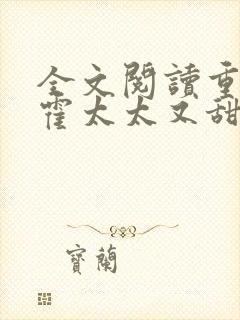 全文閱讀重
霍太太又甜
寶蘭